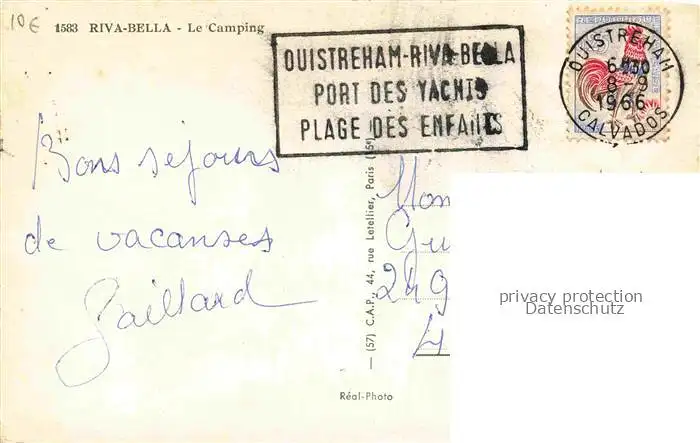 10€
1583 RIVA-BELLA - Le Camping
OUISTREHAM-RIVA-BELLA
PORT DES YACHTS
PLAGE DES ENFANTS
OUISTREHAM
8-9
1966
CALVADOS
Bons sejours
de vacanses
Gaillard
— (57) C.A.P., 44, rue Letellier, Paris (15e)
Réal-Photo
Mon
Gu
249
4
privacy protection
Datenschutz